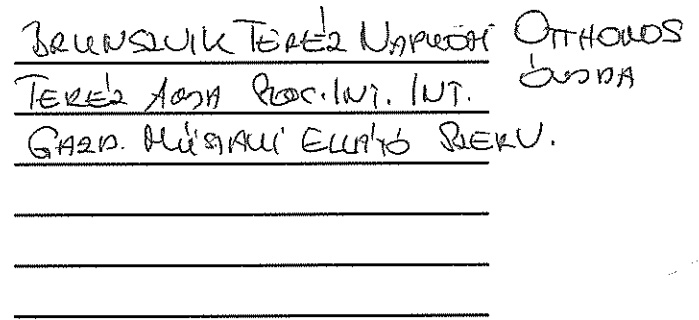 BRUNSZVIK TERÉZ NAPKÖZI OTTHONOS
ÓVODA
TERÉZ ANYA SZOC. INT. INT.
GAZD. MŰSZAKI ELLÁTÓ SZERV.